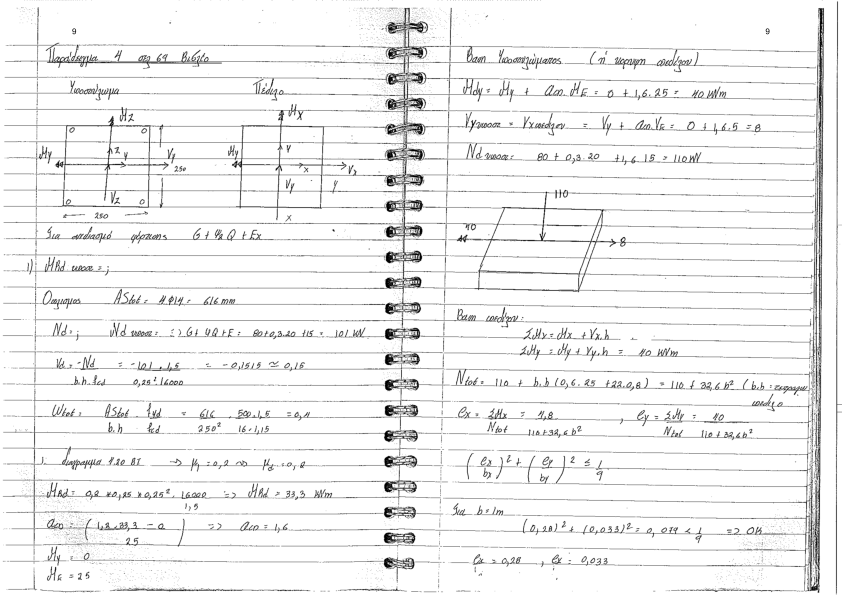 9
Παράδειγμα 4 σελ 69 Βιβλίο
Υποστύλωμα Πέδιλο
Mz
My
z
y
Vy
Vz
250
250
Mx
My
y
x
Vx
Vy
y
x
Για συνδιασμό φόρτισης G + Ψ2 Q + Ex
1) MRd υποσ = ;
Οπλισμος AStot = 4Φ14 = 616 mm
Nd = ; Nd υποσ = => G + ΨQ + E = 80 + 0,3.20 + 15 = 101 kN
Vd = -Nd / b.h.fcd = -101 . 1,5 / 0,25² 16000 = -0,1515 ≃ 0,15
Wtot = AStot . fyd / b.h fcd = 616 . 500.1,5 / 250² 16.1,15 = 0,4
διαγραμμα 4.20 ΒΙ -> μ1 = 0,2 μd = 0,2
MRd = 0,2 x 0,25 x 0,25² . 16000 / 1,5 => MRd = 33,3 kNm
aco = ( 1,2.33,3 - 0 / 25 ) => aco = 1,6
My = 0
ME = 25
9
Βαση Υποστυλώματος (ή κορυφη πεδίλου)
Mdy = My + aco. ME = 0 + 1,6.25 = 40 kNm
Vyυποσ = Vxπεδίλου = Vy + aco. VE = 0 + 1,6.5 = 8
Nd υποσ = 80 + 0,3.20 + 1,6 15 = 110 kN
110
40
8
Βαση πεδίλου:
ΣMx = Mx + Vx.h
ΣMy = My + Vy.h = 40 kNm
Ntot = 110 + b.b (0,6.25 + 22.0,8) = 110 + 32,6 b² (b.b =
πεδίλο
ex = ΣMx / Ntot = 4,8 / 110 + 32,6 b² , ey = ΣMy / Ntot = 40 / 110 + 32,6 b²
( ex / bx )² + ( ey / by )² ≤ 1/9
Για b = 1m
(0,28)² + (0,033)² = 0,079 < 1/9 => OK
ex = 0,28 , ex = 0,033